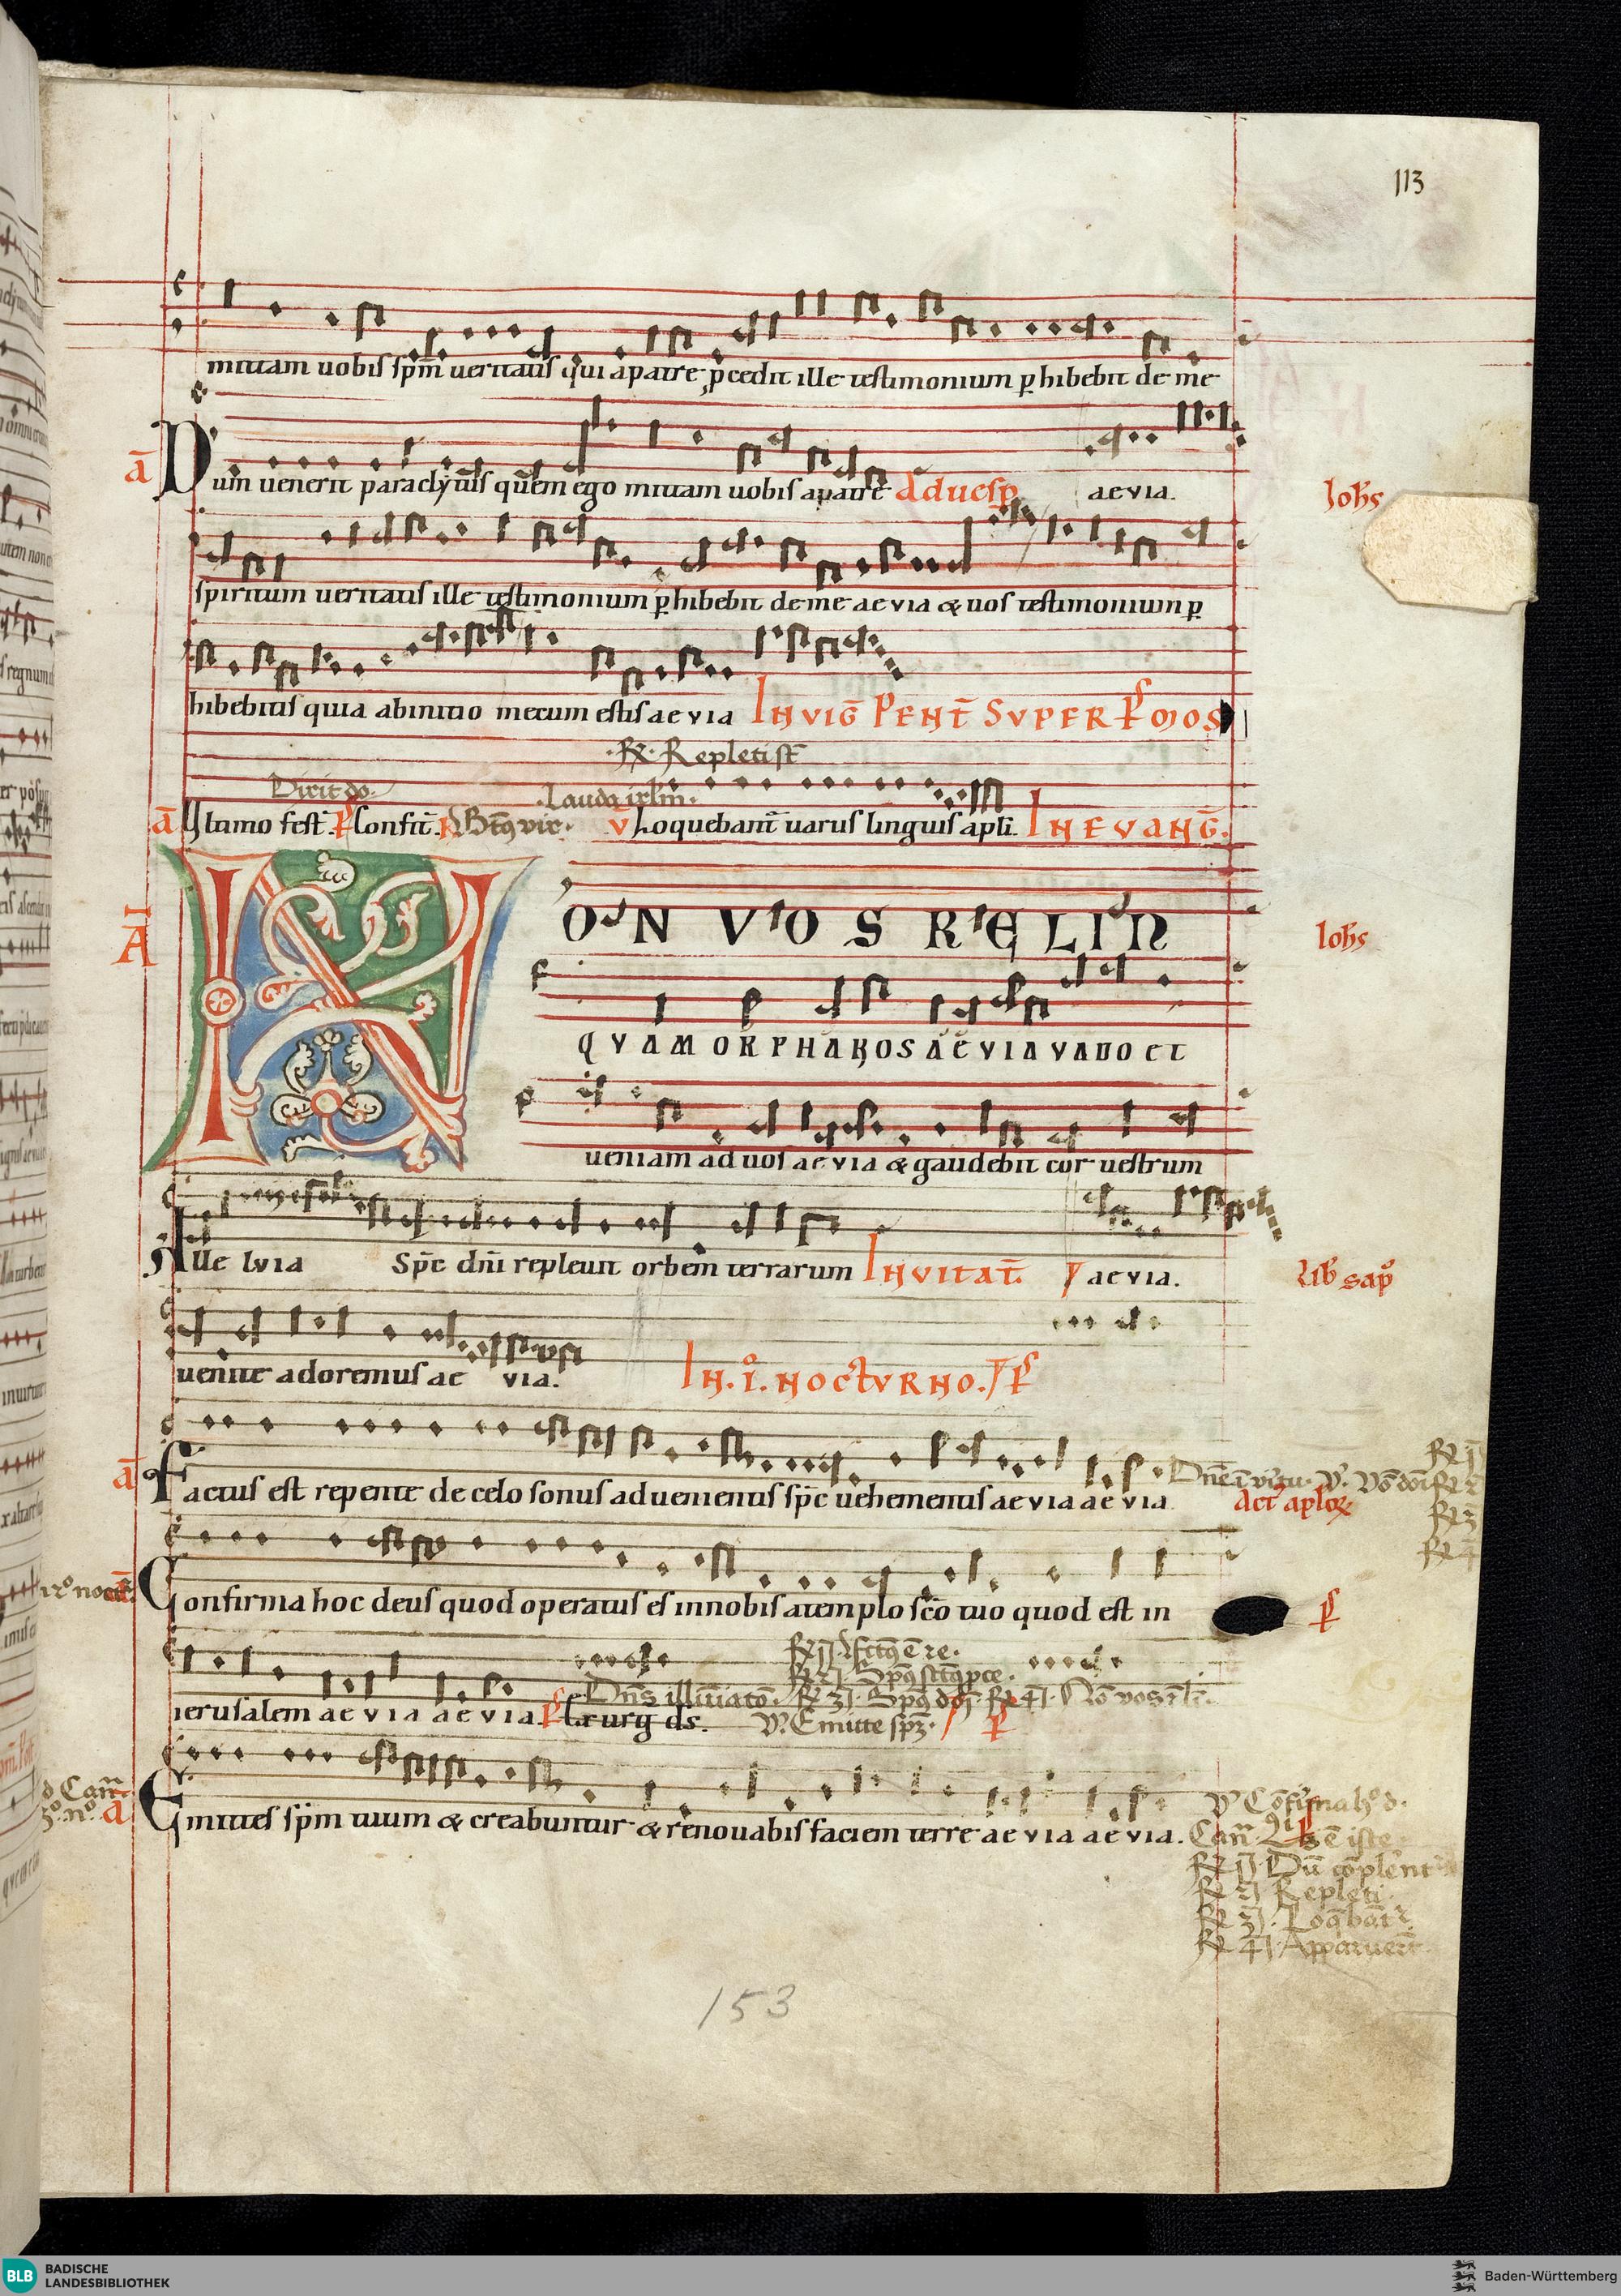 113
mittam uobis sp̄m ueritatis qui apatre p̱cedit ille testimonium ꝑhibebit de me
ā Dum uenerit paraclytus quem ego mittam uobis apatre Aduesp̄ aevia. Ioh̄s
spiritum ueritatis ille testimonium ꝑhibebit de me aevia & uos testimonium ꝑ
hibebitis quia abinitio mecum estis aevia IN VIḠ PENT̄ SVPER P̄S MOS
R̄ Repleti st̄
Dixit do. Lauda irl̄m.
ā Vltimo fest̄. P̄s Confit̄. V Loquebant̄ uariis linguis apl̄i. IN EVANḠ.
Ā NON VOS RELIN Ioh̄s
QVAM ORPHANOS AEVIA VADO ET
ueniam ad uos aevia & gaudebit cor uestrum
Alle lvia Sp̄c dn̄i repleuit orbem terrarum INVITAT̄. aevia. Lib̄ sap̄
uenite adoremus ae via. IN. I. NOCTVRNO. P̄s
ā Factus est repente de celo sonus aduenientis sp̄c uehementis aevia aevia Act̄ aplōꝝ
Confirma hoc deus quod operatus es innobis atemplo sc̄o tuo quod est in P̄s
ierusalem aevia aevia. P̄s Exurḡ ds̄. V. Emitte sp̄ꝫ. P̄s
ā Emittes sp̄m tuum & creabuntur & renouabis faciem terre aevia aevia.
V Cōfirma h̊ d.
R̄ 1 Dū cōplēnt
R̄ 2 Repleti
R̄ 3 Loq̄bāt
R̄ 4 Apparuer̄t
153
BLB BADISCHE
LANDESBIBLIOTHEK
Baden-Württemberg